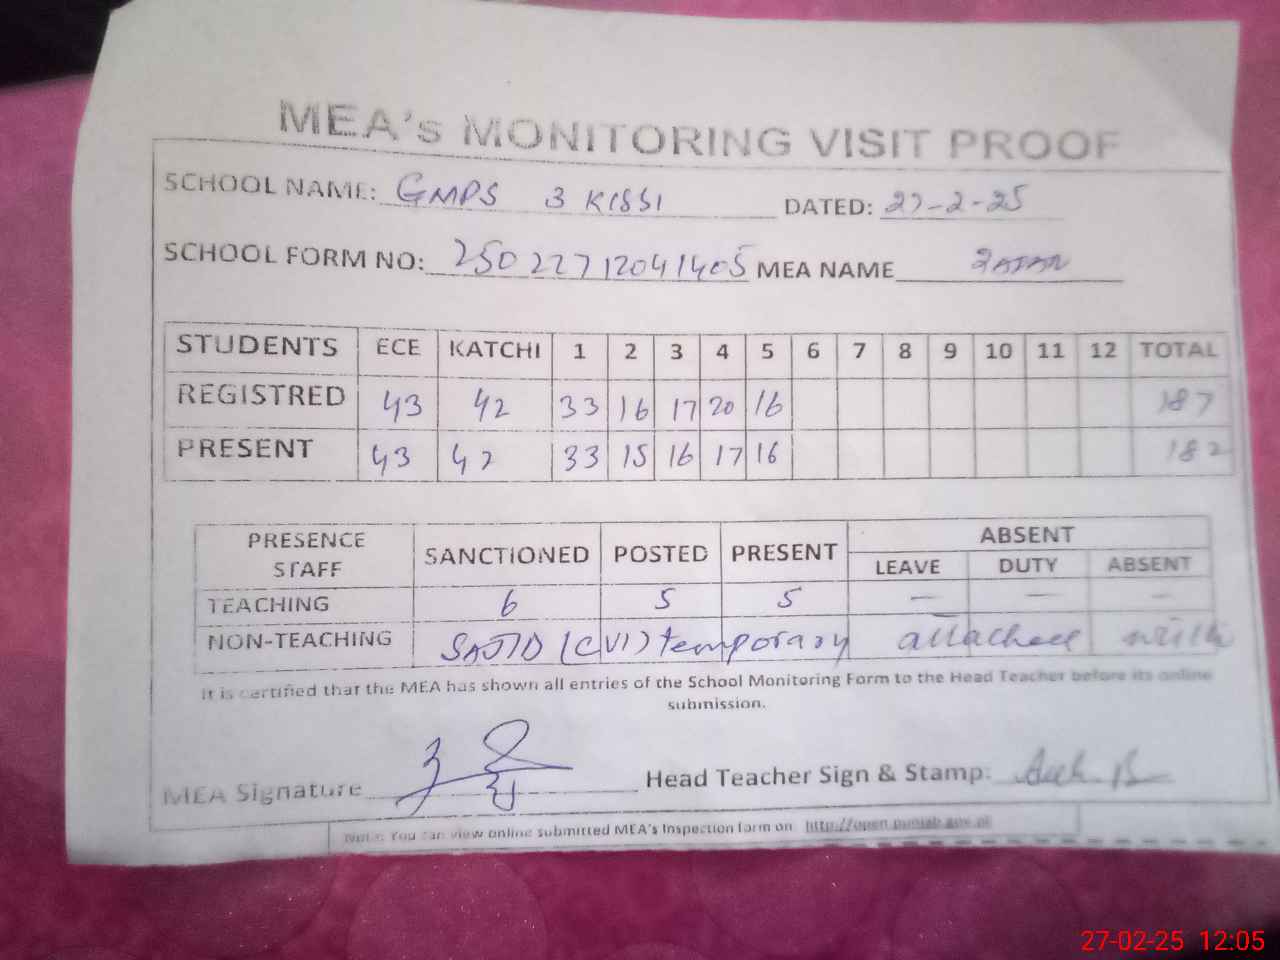 MEA's MONITORING VISIT PROOF
SCHOOL NAME: GMPS 3 KISSI DATED: 27-2-25
SCHOOL FORM NO: 25022712041405 MEA NAME
STUDENTS ECE KATCHI 1 2 3 4 5 6 7 8 9 10 11 12 TOTAL
REGISTRED 43 42 33 16 17 20 16 187
PRESENT 43 42 33 15 16 17 16 182
PRESENCE STAFF SANCTIONED POSTED PRESENT ABSENT
LEAVE DUTY ABSENT
TEACHING 6 5 5 — — —
NON-TEACHING SAJID (CVI) temporary attached with
It is certified that the MEA has shown all entries of the School Monitoring Form to the Head Teacher before its online
submission.
MEA Signature Head Teacher Sign & Stamp:
Note: You can view online submitted MEA's Inspection form on http://open.punjab.gov.pk
27-02-25 12:05